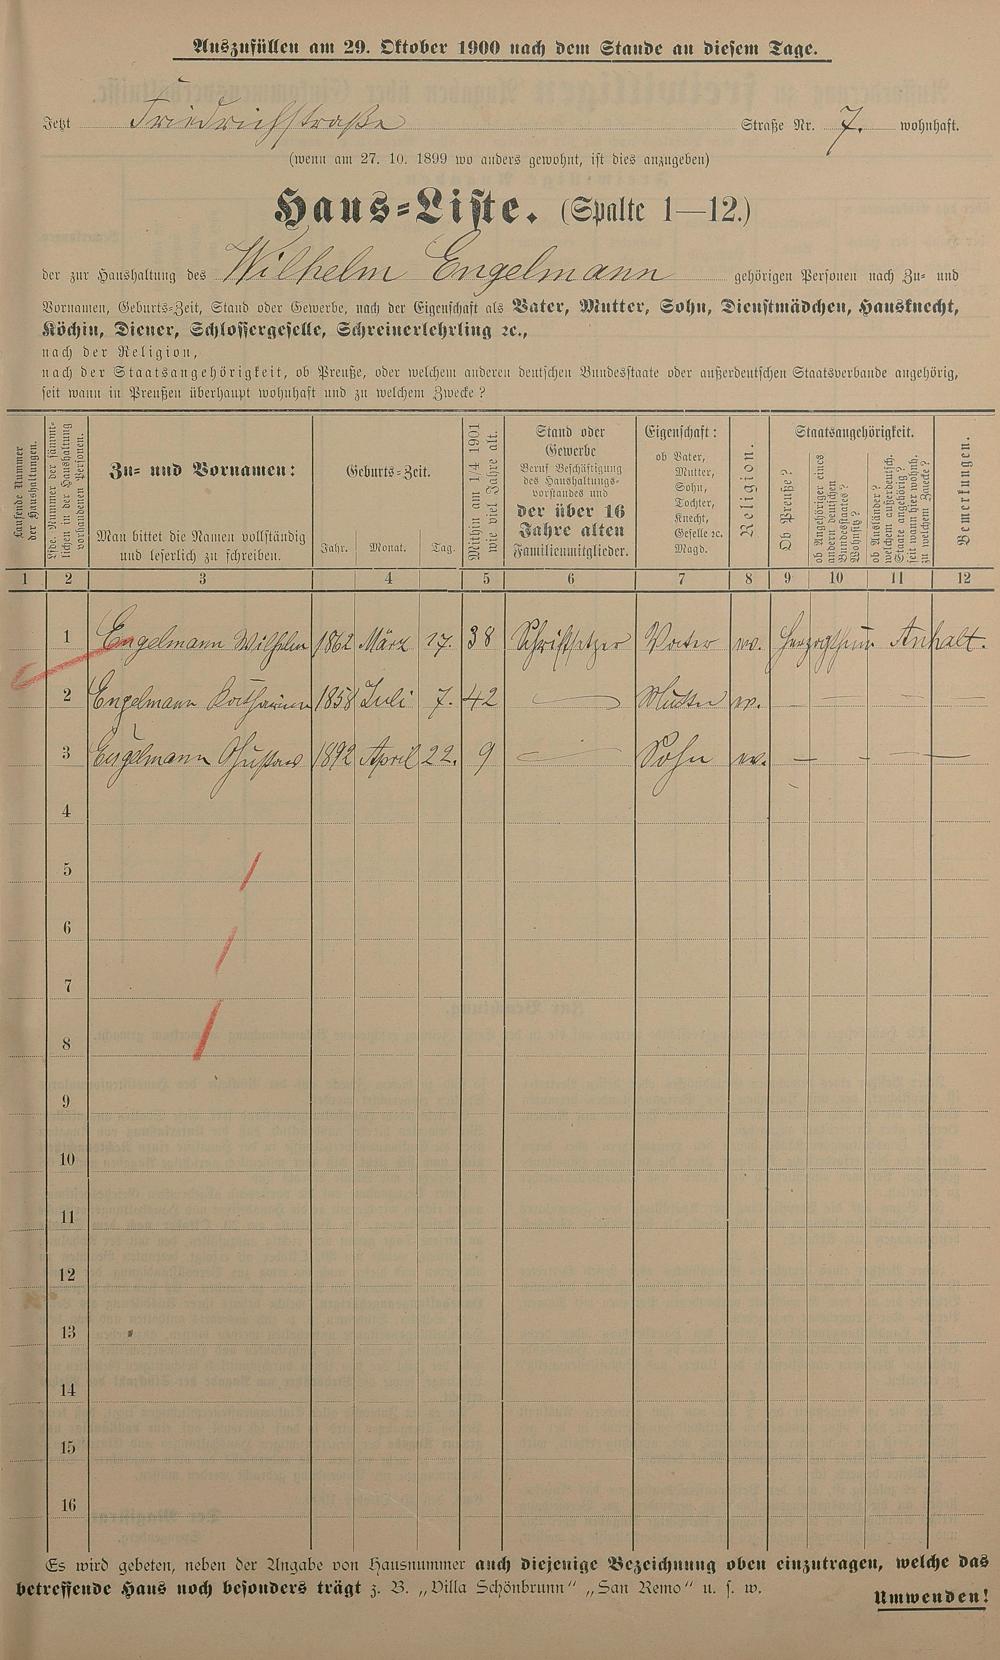 Auszufüllen am 29. Oktober 1900 nach dem Stande an diesem Tage.
Jetzt Friedrichstraße Straße Nr. 7. wohnhaft.
(wenn am 27. 10. 1899 wo anders gewohnt, ist dies anzugeben)
Haus-Liste. (Spalte 1—12.)
der zur Haushaltung des Wilhelm Engelmann gehörigen Personen nach Zu- und
Vornamen, Geburts-Zeit, Stand oder Gewerbe, nach der Eigenschaft als Vater, Mutter, Sohn, Dienstmädchen, Hausknecht,
Köchin, Diener, Schlossergeselle, Schreinerlehrling ec.,
nach der Religion,
nach der Staatsangehörigkeit, ob Preuße, oder welchem anderen deutschen Bundesstaate oder außerdeutschen Staatsverbande angehörig,
seit wann in Preußen überhaupt wohnhaft und zu welchem Zwecke?
Laufende Nummer
der Haushaltungen.
lfde. Nummer der sämmt-
lichen in der Haushaltung
vorhandenen Personen.
Zu- und Vornamen:
Man bittet die Namen vollständig
und leserlich zu schreiben.
Geburts-Zeit.
Jahr. Monat. Tag.
Mithin am 1/4 1901
wie viel Jahre alt.
Stand oder
Gewerbe
Beruf Beschäftigung
des Haushaltungs-
vorstandes und
der über 16
Jahre alten
Familienmitglieder.
Eigenschaft:
ob Vater,
Mutter,
Sohn,
Tochter,
Knecht,
Geselle ec.
Magd.
Religion.
Staatsangehörigkeit.
Ob Preuße?
ob Angehöriger eines
andern deutschen
Bundesstaates?
Wohnsitz?
ob Ausländer?
welchem außerdeutsch.
Staate angehörig?
seit wann hier wohnh.
zu welchem Zwecke?
Bemerkungen.
1 2 3 4 5 6 7 8 9 10 11 12
1 Engelmann Wilhelm 1862 März 17. 38 Schriftsetzer Vater ev. Herzogthum Anhalt.
2 Engelmann Katharina 1858 Juli 7. 42 — Mutter ev. — — —
3 Engelmann Gustav 1892 April 22. 9 — Sohn ev. — — — —
4
5
6
7
8
9
10
11
12
13
14
15
16
Es wird gebeten, neben der Angabe von Hausnummer auch diejenige Bezeichnung oben einzutragen, welche das
betreffende Haus noch besonders trägt z. B. „Villa Schönbrunn“ „San Remo“ u. s. w.
Umwenden!